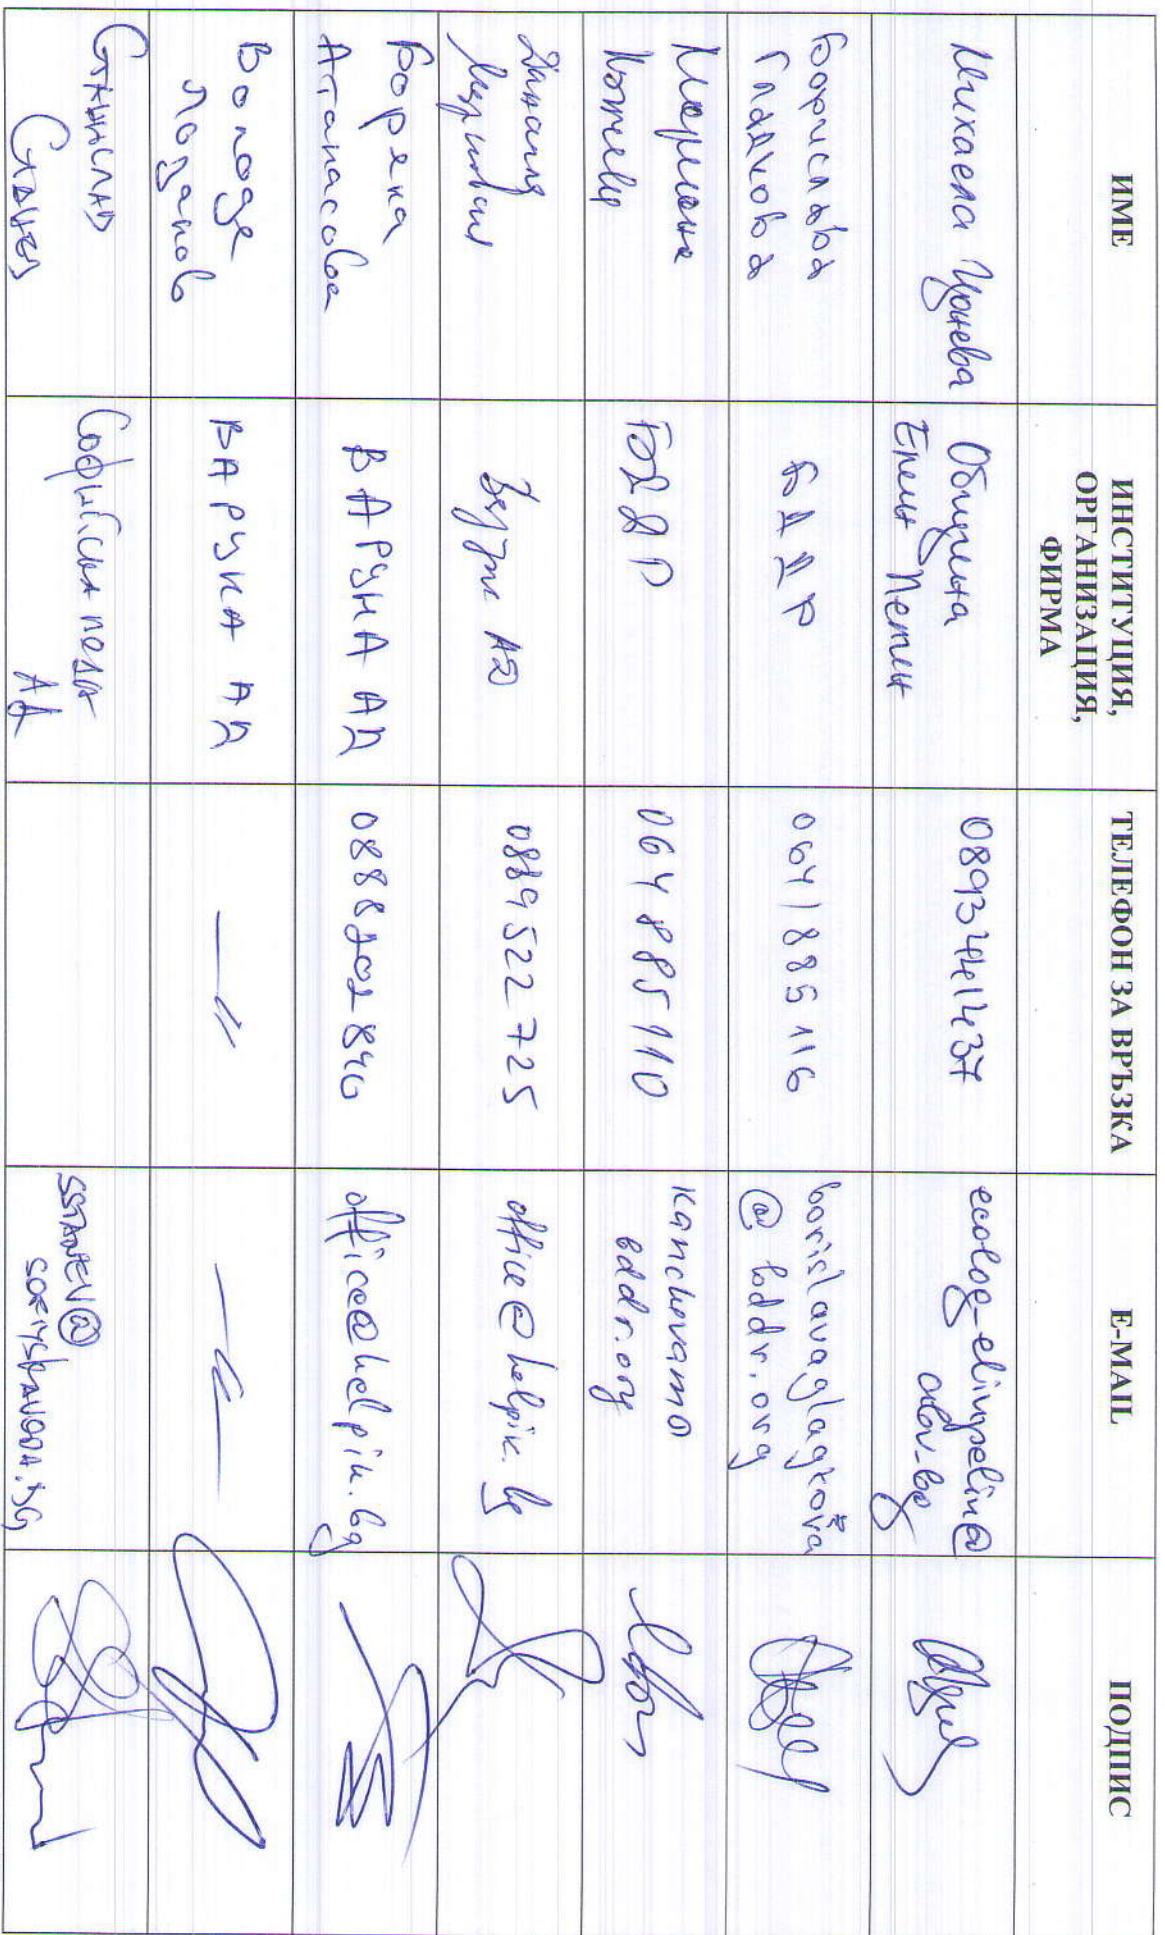 ИМЕ
ИНСТИТУЦИЯ,
ОРГАНИЗАЦИЯ,
ФИРМА
ТЕЛЕФОН ЗА ВРЪЗКА
E-MAIL
ПОДПИС
Михаела Цонева
Община
Елин Пелин
0893441437
ecolog-elinpelin@
abv.bg
Борислава
Гладкова
БДДР
064/885 116
borislavaglagkova
@ bddr.org
Кънчева
БДДР
064 885110
kanchevam@
bddr.org
АД
0889522725
office@helpik.bg
Боряна
Атанасова
ВАРУНА АД
0888202846
office@helpik.bg
Володя
Лозанов
ВАРУНА АД
Станислав
Станев
Софийска вода
АД
SSTANEV@
SOFIYSKAVODA.BG